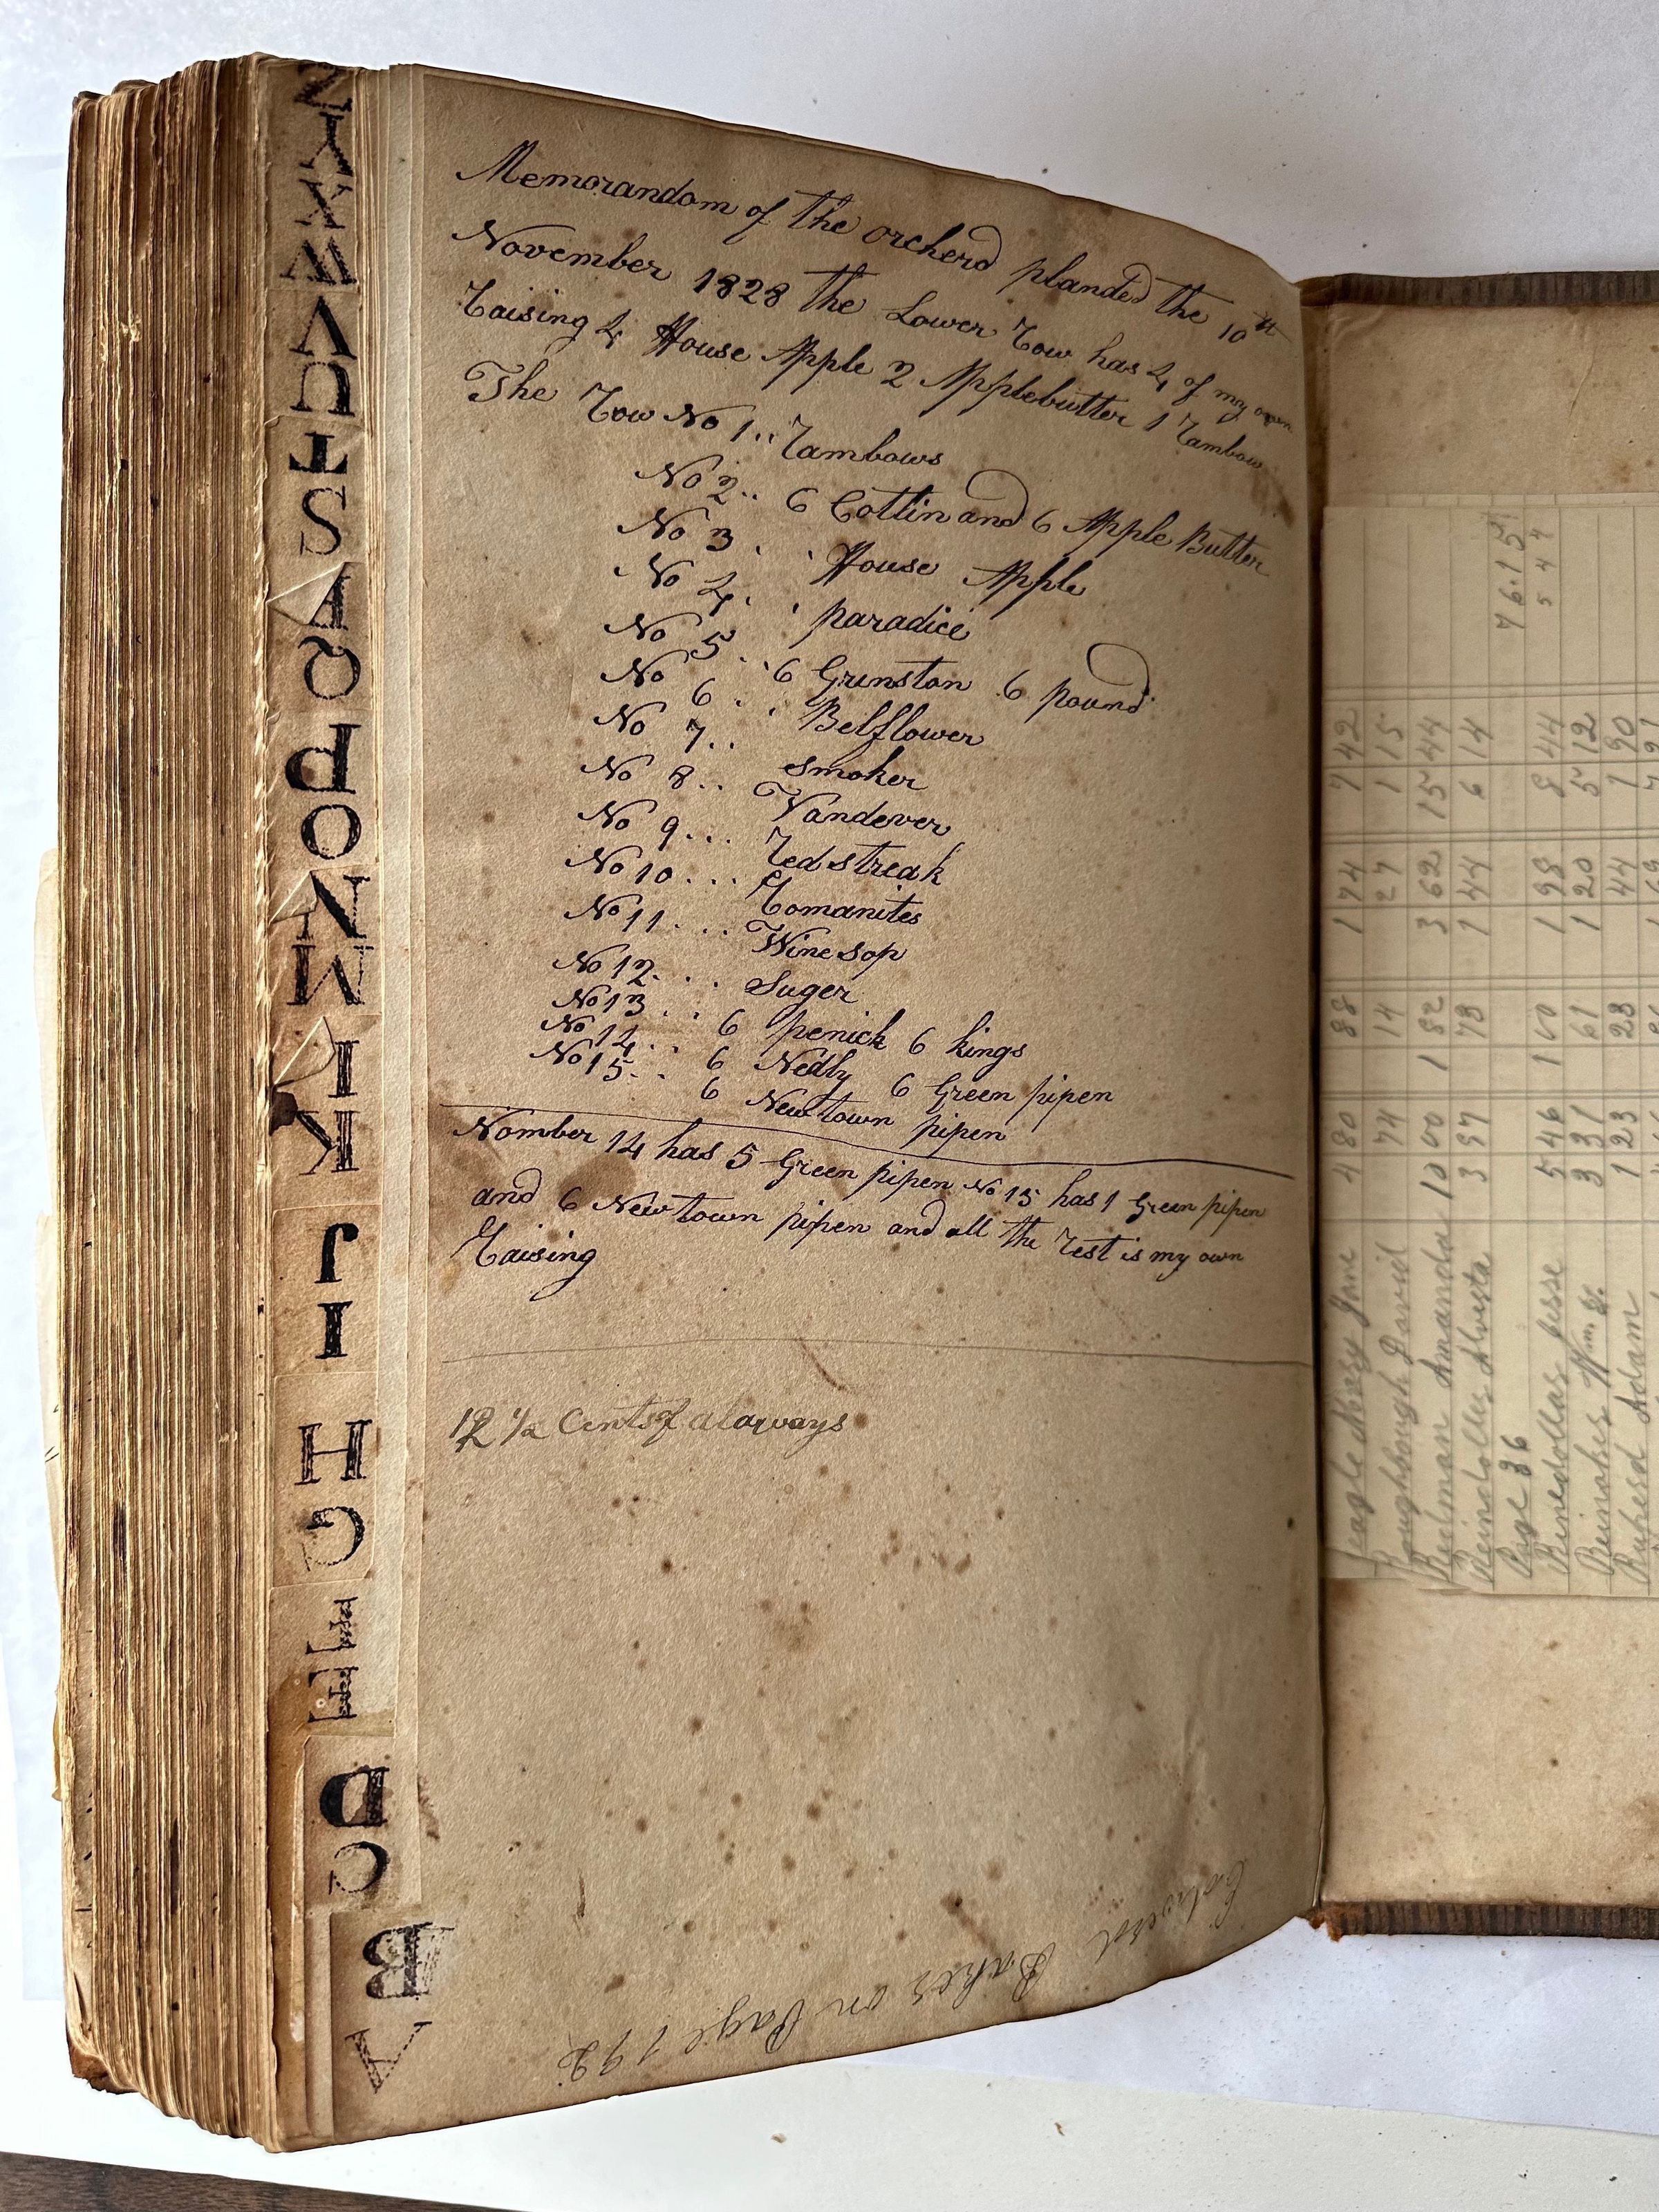 Memorandom of the orcherd planded the 10th
November 1828 the Lower Row has 4 of my own
Raising 4 House Apple 2 Applebutter 1 Rambow
The Row No 1.. Rambows
No 2.. 6 Cottin and 6 Apple Butter
No 3. . House Apple
No 4. . paradice
No 5.. 6 Grinston 6 pound
No 6. . Belflower
No 7.. Smoker
No 8.. Vandever
No 9... Redstreak
No 10... Romanites
No 11.... Wine sop
No 12... Suger
No 13... 6 penick 6 kings
No 14... 6 Nedly 6 Green pipen
No 15.. 6 Newtown pipen
Nomber 14 has 5 Green pipen No 15 has 1 Green pipen
and 6 Newtown pipen and all the rest is my own
Raising
12 1/2 Cents of alaways
Edward Baker on Page 192
Z
Y
X
W
V
U
T
S
Q
P
O
N
M
K
J
I
H
G
F
E
D
C
B
A
Mary Jane 480 88 174 742
David 74 14 27 115
Amanda 1000 182 362 1544
Alvesta 397 73 144 614
Page 36 7615
544
Jesse 546 100 198 844
Wm. 331 61 120 512
Adam 123 23 44 190